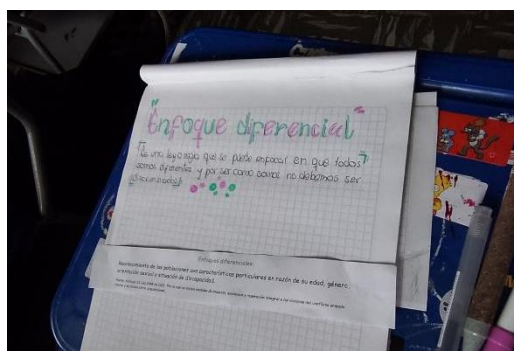 "Enfoque diferencial"
Es una ley o regla que se puede enfocar en que todos
somos diferentes y por ser como somos no debemos ser
discriminados
Enfoques diferenciales:
Reconocimiento de las poblaciones con características particulares en razón de su edad, género,
orientación sexual y situación de discapacidad.